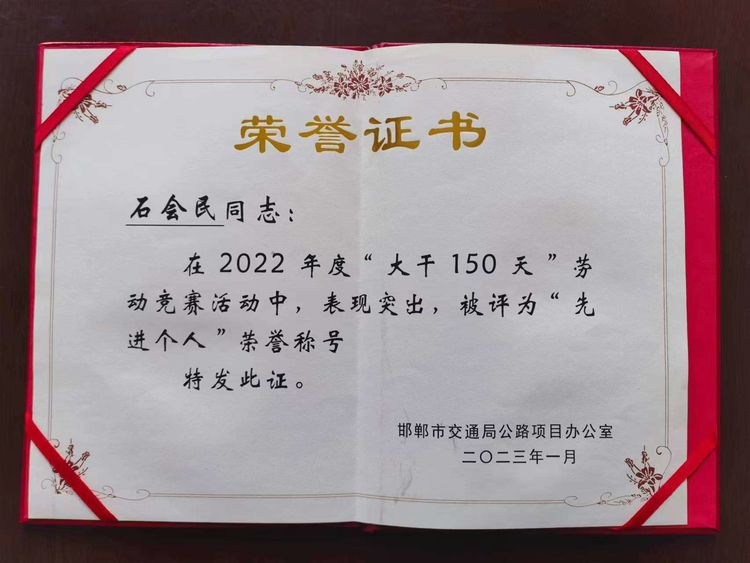 荣誉证书
石会民同志：
在 2022 年度“大干 150 天”劳
动竞赛活动中，表现突出，被评为“先
进个人”荣誉称号
特发此证。
邯郸市交通局公路项目办公室
二〇二三年一月